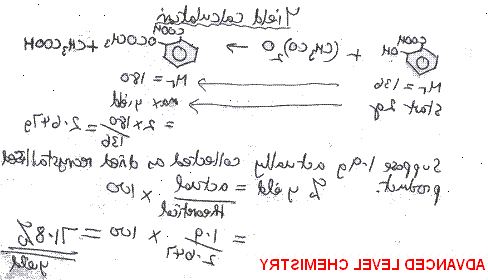 Yield calculation
COOH
OH + (CH₃CO)₂O → COOH OCOCH₃ + CH₃COOH
Mr = 136 → Mr = 180
start 2g → max yield
= 2 x 180/136 = 2.647g
Suppose 1.9g actually collected as dried recrystallised
product. % yield = actual/theoretical x 100
= 1.9/2.647 x 100 = 71.8%
yield
ADVANCED LEVEL CHEMISTRY